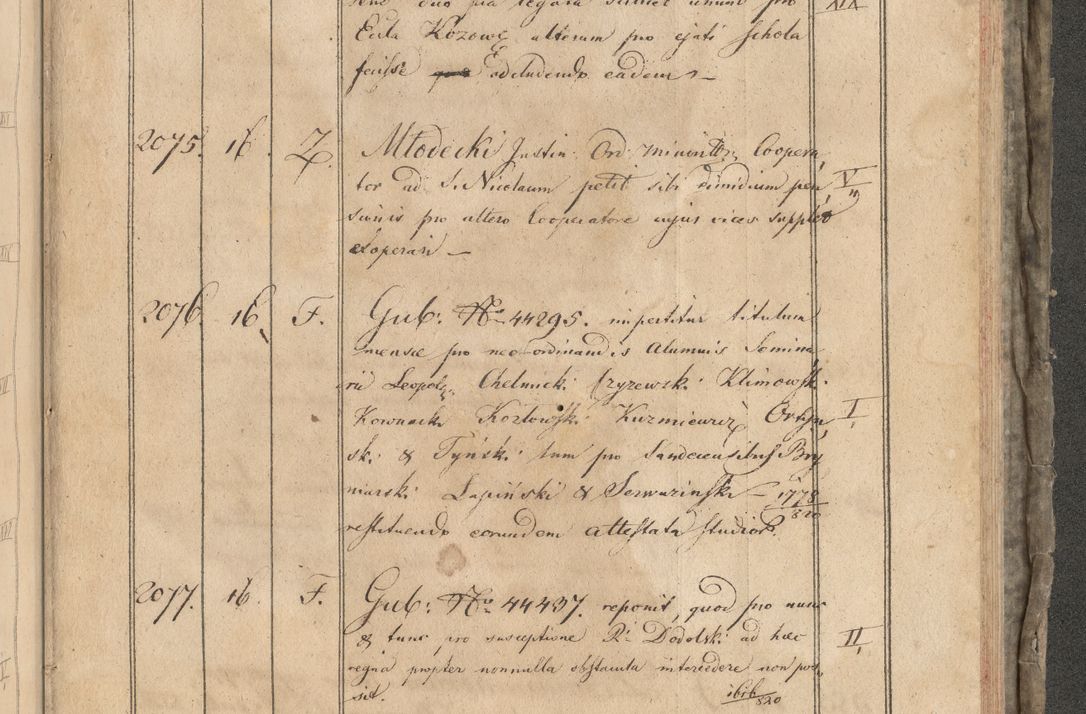 Ecła Kozowę alterum pro ejati schola XIX
fecisse Edeludendo eadem —
2075. 16. Z. Młodecki Justin Ord: Minorum Coopera,
tor ad S. Nicolaum petit sibi dimidium pen V
sionis pro altero Cooperatore cujus vices supplet
—
2076. 16. F. Gub: No 44295. impertitur titulum
mensae pro neo-ordinandis Alumnis Semina,
rii Leopol: Chelmicki Czyzewski Klimowski
Kownacki Kozlowski Kuzmiewicz Ortyn, I
ski & Tyński tum pro Sandecensibus Bry
niarski Lapiński & Serwazinski — 1778/820
restituendo eorundem attestata studior.
2077. 16. F. Gub: No 44437. reponit, quod pro nunc
& tunc pro susceptione R: Dodolski ad haec II
regna propter nonnulla obstacula intercedere non pos,
sit. 1616/820